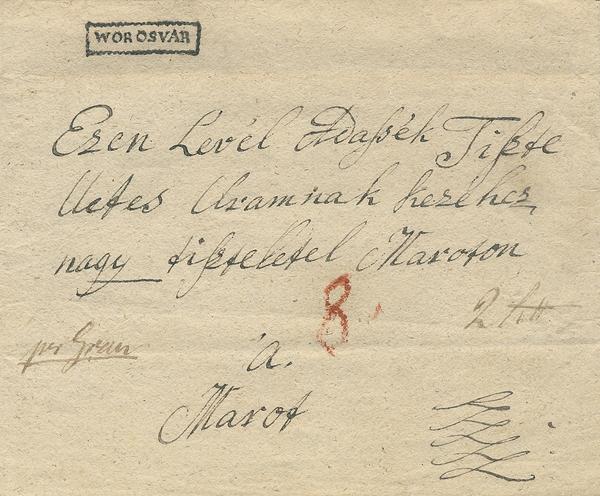 WOROSVAR
Ezen Levél Adassék Tiszte
lletes Uramnak kezéhez
nagy tiszteletel Maroton
8
2
per Gran
a.
Marot